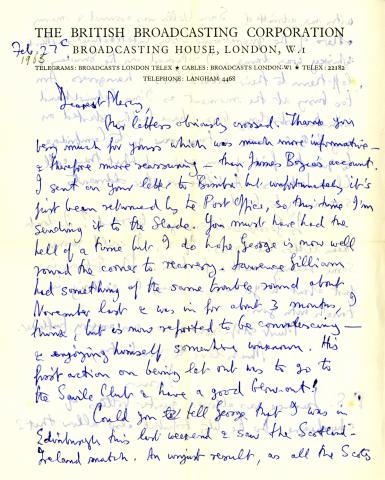 THE BRITISH BROADCASTING CORPORATION
Feb. 27th
1965
BROADCASTING HOUSE, LONDON, W.1
TELEGRAMS: BROADCASTS LONDON TELEX ★ CABLES: BROADCASTS LONDON-W1 ★ TELEX: 22182
TELEPHONE: LANGHAM 4468
Dearest Mercy,
Our letters obviously crossed. Thank you
very much for yours which was much more informative –
& therefore more reassuring – than James Boyce's account.
I sent on your letter to Bimba but unfortunately it's
just been returned by the Post Office, so this time I'm
sending it to the Slade. You must have had the
hell of a time but I do hope George is now well
round the corner to recovery. Laurence Gilliam
had something of the same trouble round about
November last & was in for about 3 months, I
think, but is now reported to be convalescing –
& enjoying himself somewhere unknown. His
first action on being let out was to go to
the Savile Club & have a good blow-out!
Could you tell George that I was in
Edinburgh this last weekend & saw the Scotland-
Ireland match. An unjust result, as all the Scots